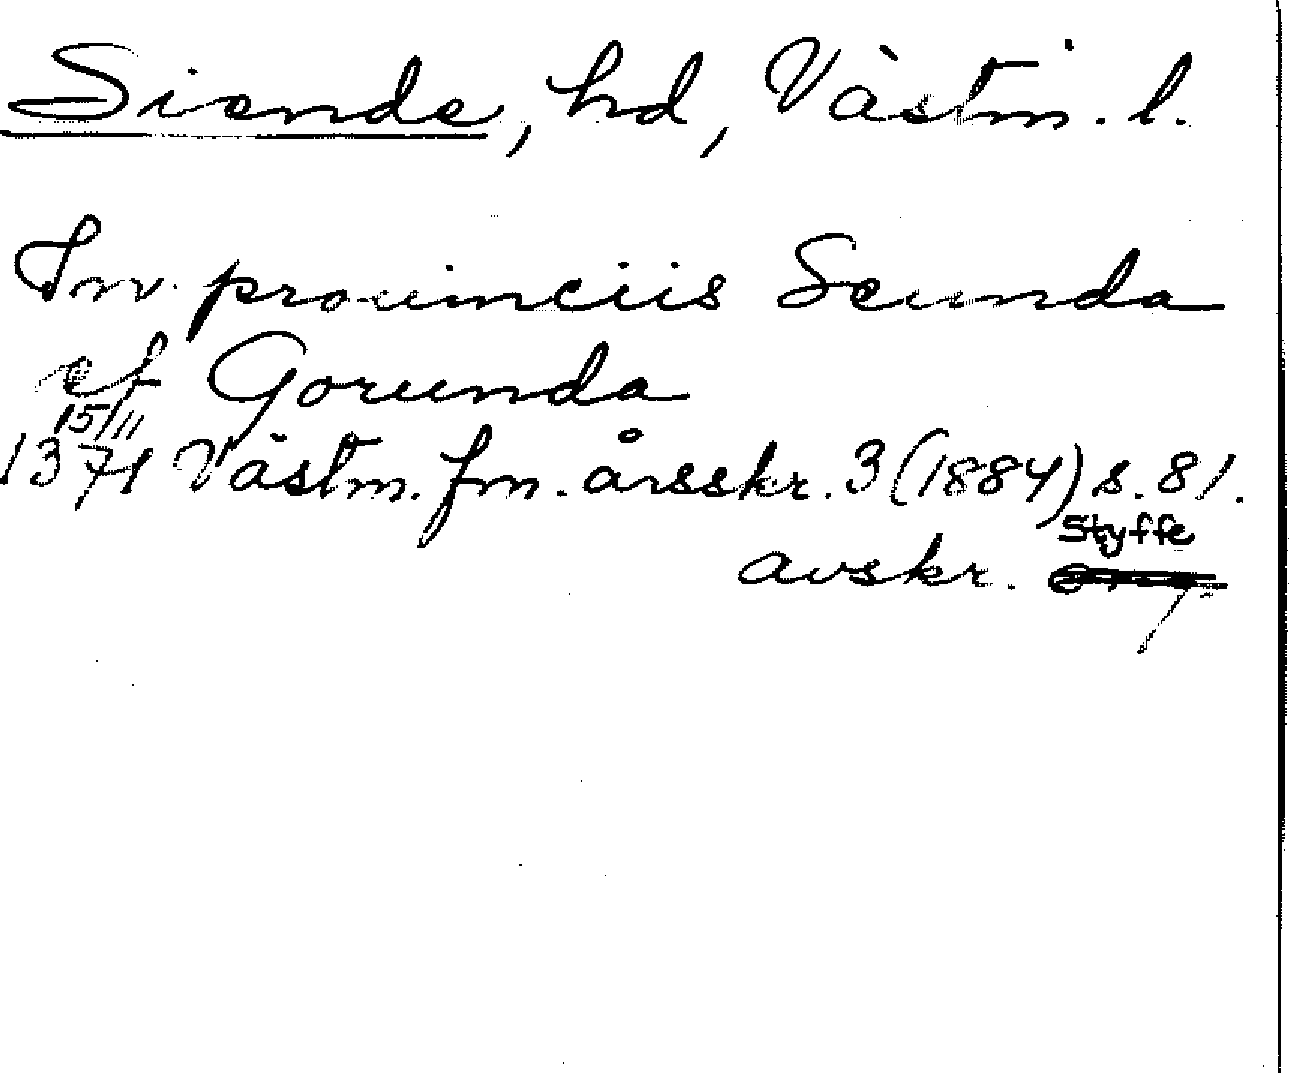 Siende, hd, Västm. l.
In prouinciis Seunda
et Gorunda
15/11
1371 Västm. fm. årsskr. 3 (1884) s. 81.
Styffe
avskr.